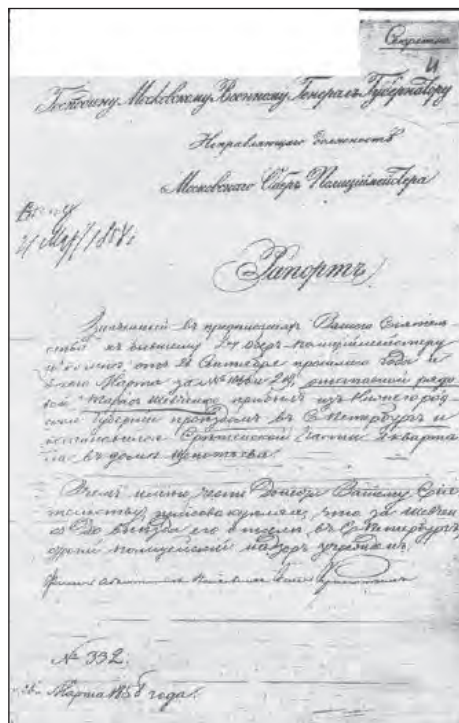 Секретно
Господину Московскому Военному Генералъ Губернатору
Исправляющаго должность
Московскаго Оберъ Полиціймейстера
21 Мар
Рапортъ.
Значенный въ предписаніяхъ Вашего Сіятель-
ства къ бывшему Оберъ-полиціймейстеру
и ко мнѣ отъ Сентября прошлаго года и
Марта за №№ отставной рядо-
вой Тарасъ Шевченко прибылъ изъ Нижегород-
ской губерніи проѣздомъ въ С.Петербургъ и
остановился Срѣтенской части квартa-
ла въ домѣ Щепотьева.
О чемъ имѣю честь Донести Вашему Сія-
тельству, присовокупляя, что за Шевчен-
ко до выѣзда его отсель въ С.Петербургъ,
полицейскій надзоръ учрежденъ.
№ 332.
Марта 1858 года.